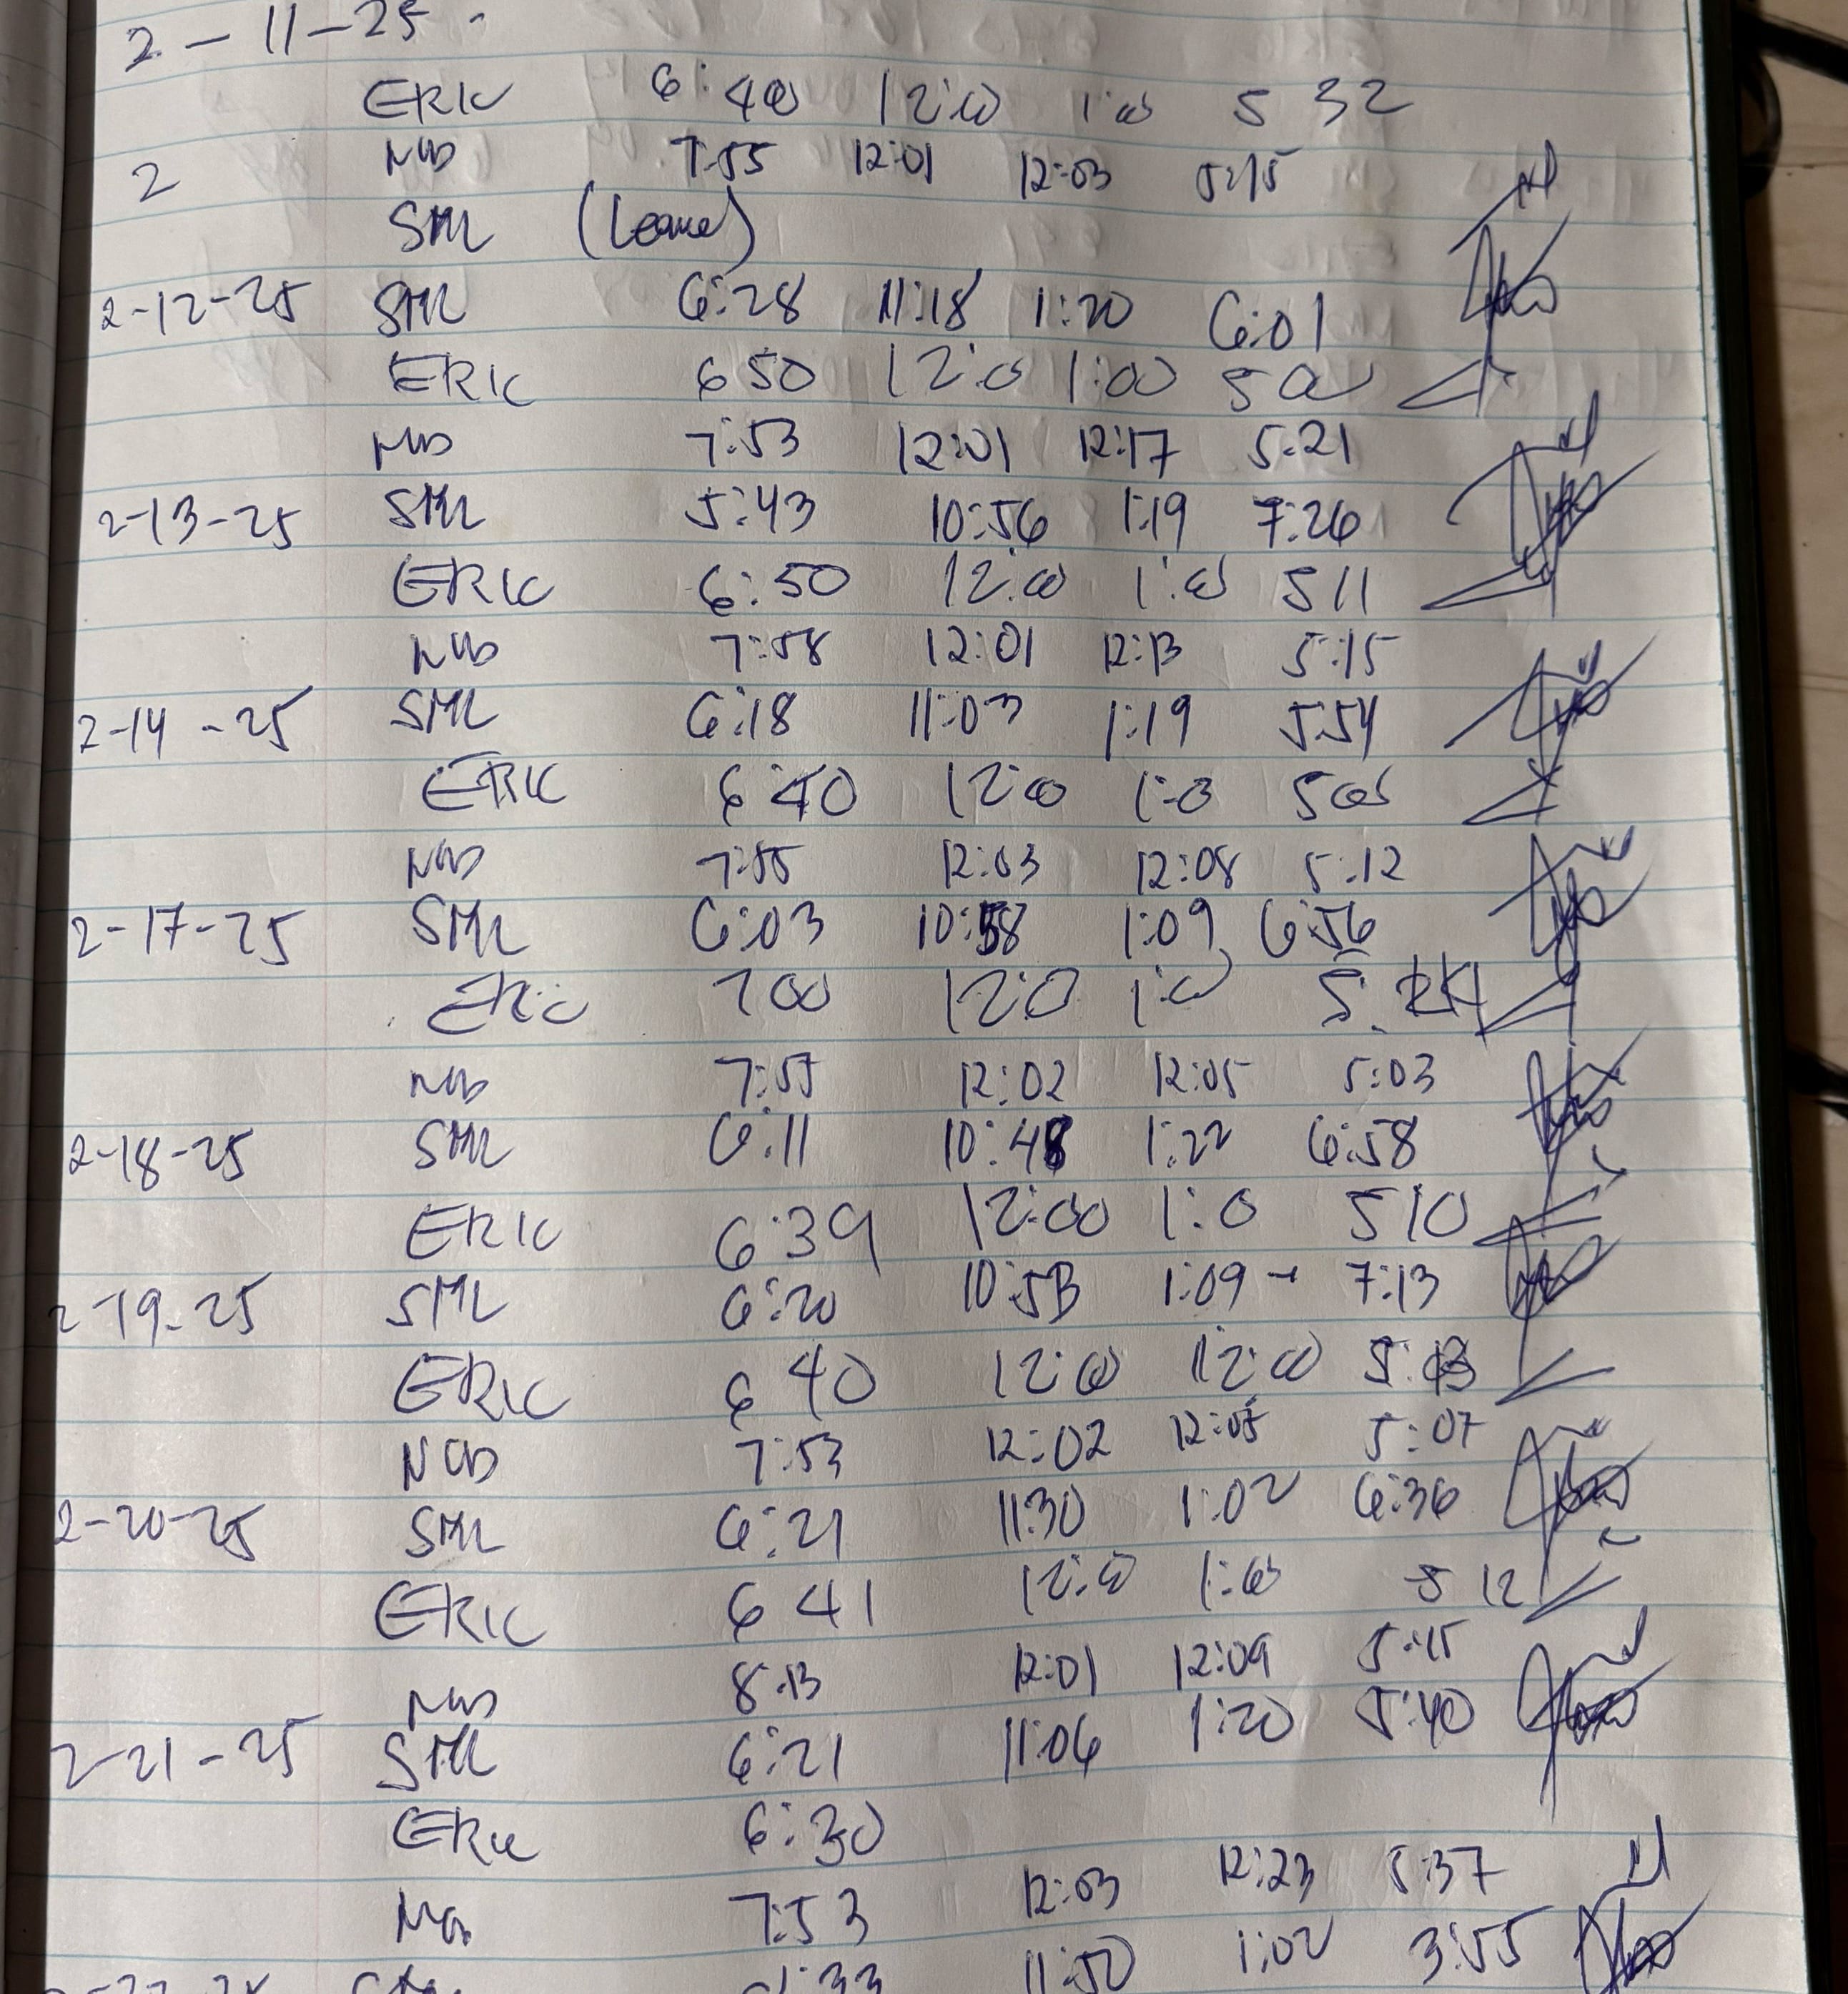 2-11-25
ERIC 6:40 12:00 1:00 5 32
2 NCD 7:55 12:01 12:03 5:15
SML (Leave)
2-12-25 SML 6:28 11:18 1:20 6:01
ERIC 6 50 12:0 1:00 5 00
NCD 7:53 12:01 12:17 5:21
2-13-25 SML 5:43 10:56 1:19 7:26
ERIC 6:50 12:00 1:00 5 11
NCD 7:58 12:01 12:13 5:15
2-14-25 SML 6:18 11:03 1:19 5:54
ERIC 6 40 12:00 1:0
NCD 7:55 12:03 12:08 5:12
2-17-25 SML 6:03 10:58 1:09 6:56
ERIC 7 00 12:0 1:0 5:
NCD 12:02 12:05 5:03
2-18-25 SML 6:11 10:48 1:22 6:58
ERIC 6:39 12:00 1:0 5 10
2-19-25 SML 6:20 10:53 1:09 - 7:13
ERIC 6 40 12:00 12:00
NCD 7:53 12:02 12:05 5:07
2-20-25 SML 6:21 11:30 1:02 6:36
ERIC 6 41 12:0 1:00 5 12
NCD 8:13 12:01 12:09 5:15
2-21-25 SML 6:21 11:06 1:20 5:40
ERIC 6:30
7:53 12:03 12:23 5:37
11:50 1:02 3:55